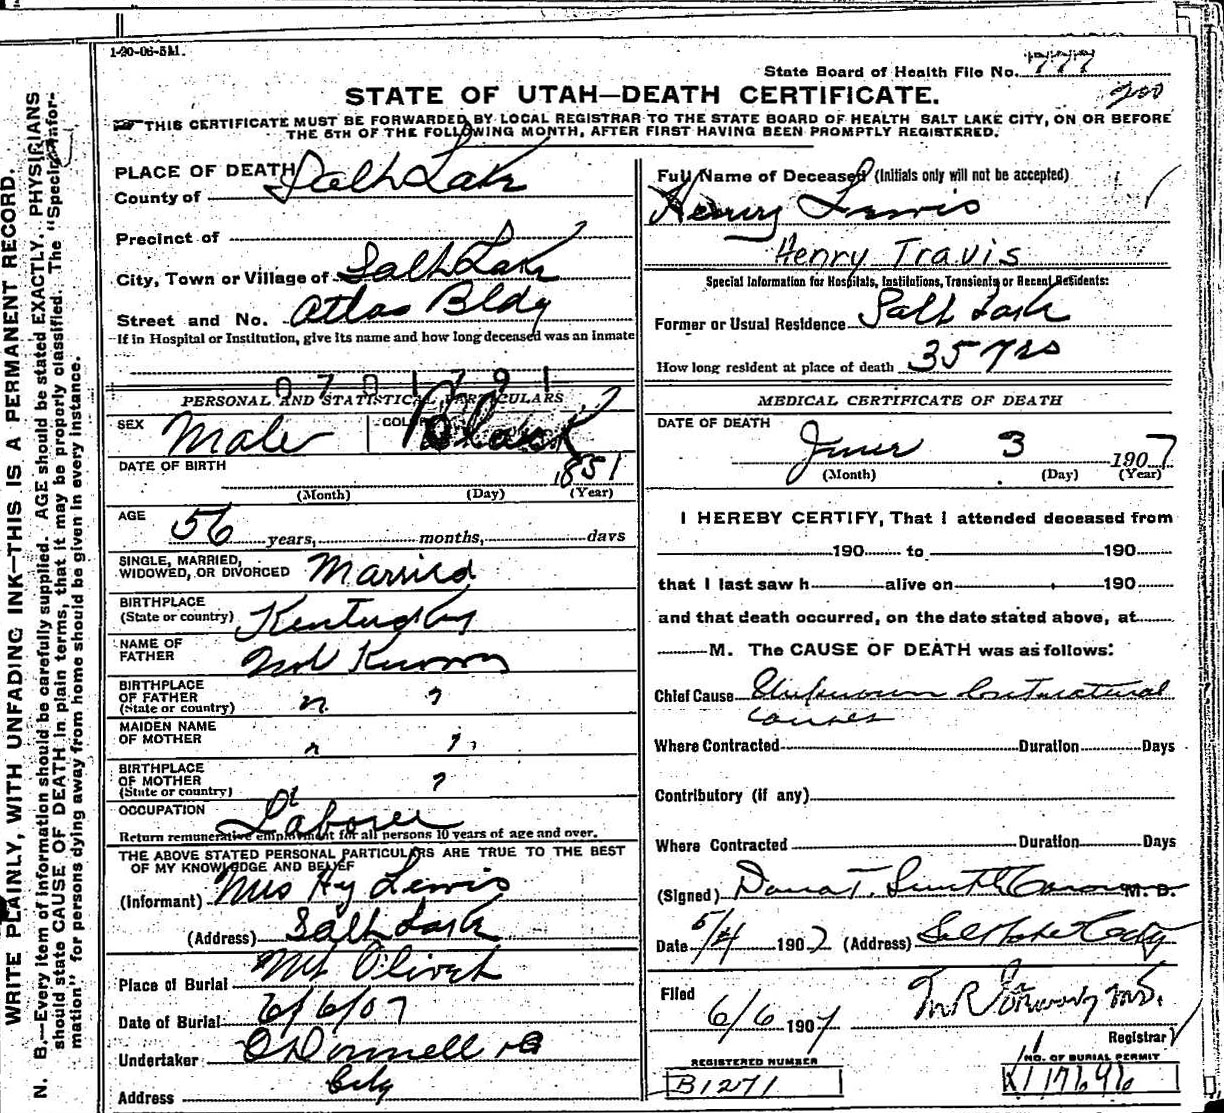 1-20-06-5M.
State Board of Health File No. 777
200
STATE OF UTAH—DEATH CERTIFICATE.
THIS CERTIFICATE MUST BE FORWARDED BY LOCAL REGISTRAR TO THE STATE BOARD OF HEALTH SALT LAKE CITY, ON OR BEFORE
THE 5TH OF THE FOLLOWING MONTH, AFTER FIRST HAVING BEEN PROMPTLY REGISTERED.
WRITE PLAINLY, WITH UNFADING INK—THIS IS A PERMANENT RECORD.
N. B.—Every item of information should be carefully supplied. AGE should be stated EXACTLY. PHYSICIANS
should state CAUSE OF DEATH in plain terms, that it may be properly classified. The "Special Infor-
mation" for persons dying away from home should be given in every instance.
PLACE OF DEATH
County of Salt Lake
Precinct of
City, Town or Village of Salt Lake
Street and No. Atlas Bldg
If in Hospital or Institution, give its name and how long deceased was an inmate
0701791
PERSONAL AND STATISTICAL PARTICULARS
SEX Male COLOR Black
DATE OF BIRTH 1851
(Month) (Day) (Year)
AGE 56 years, months, days
SINGLE, MARRIED,
WIDOWED, OR DIVORCED Married
BIRTHPLACE
(State or country) Kentucky
NAME OF
FATHER Not Known
BIRTHPLACE
OF FATHER
(State or country) " ?
MAIDEN NAME
OF MOTHER " ?
BIRTHPLACE
OF MOTHER
(State or country) ?
OCCUPATION Laborer
Return remunerative employment for all persons 10 years of age and over.
THE ABOVE STATED PERSONAL PARTICULARS ARE TRUE TO THE BEST
OF MY KNOWLEDGE AND BELIEF
(Informant) Mrs Hy Lewis
(Address) Salt Lake
Place of Burial Mt Olivet
Date of Burial 6/6/07
Undertaker O'Donnell & Co
Address City
Full Name of Deceased (Initials only will not be accepted)
Henry Lewis
Henry Travis
Special Information for Hospitals, Institutions, Transients or Recent Residents:
Former or Usual Residence Salt Lake
How long resident at place of death 35 yrs
MEDICAL CERTIFICATE OF DEATH
DATE OF DEATH
June 3 1907
(Month) (Day) (Year)
I HEREBY CERTIFY, That I attended deceased from
190 to 190
that I last saw h alive on 190
and that death occurred, on the date stated above, at
M. The CAUSE OF DEATH was as follows:
Chief Cause Unknown but natural
causes
Where Contracted Duration Days
Contributory (if any)
Where Contracted Duration Days
(Signed) Dana T. Smith M. D.
Date 5/4 1907 (Address) Salt Lake City
Filed 6/6 1907
Registrar
REGISTERED NUMBER
B1271
NO. OF BURIAL PERMIT